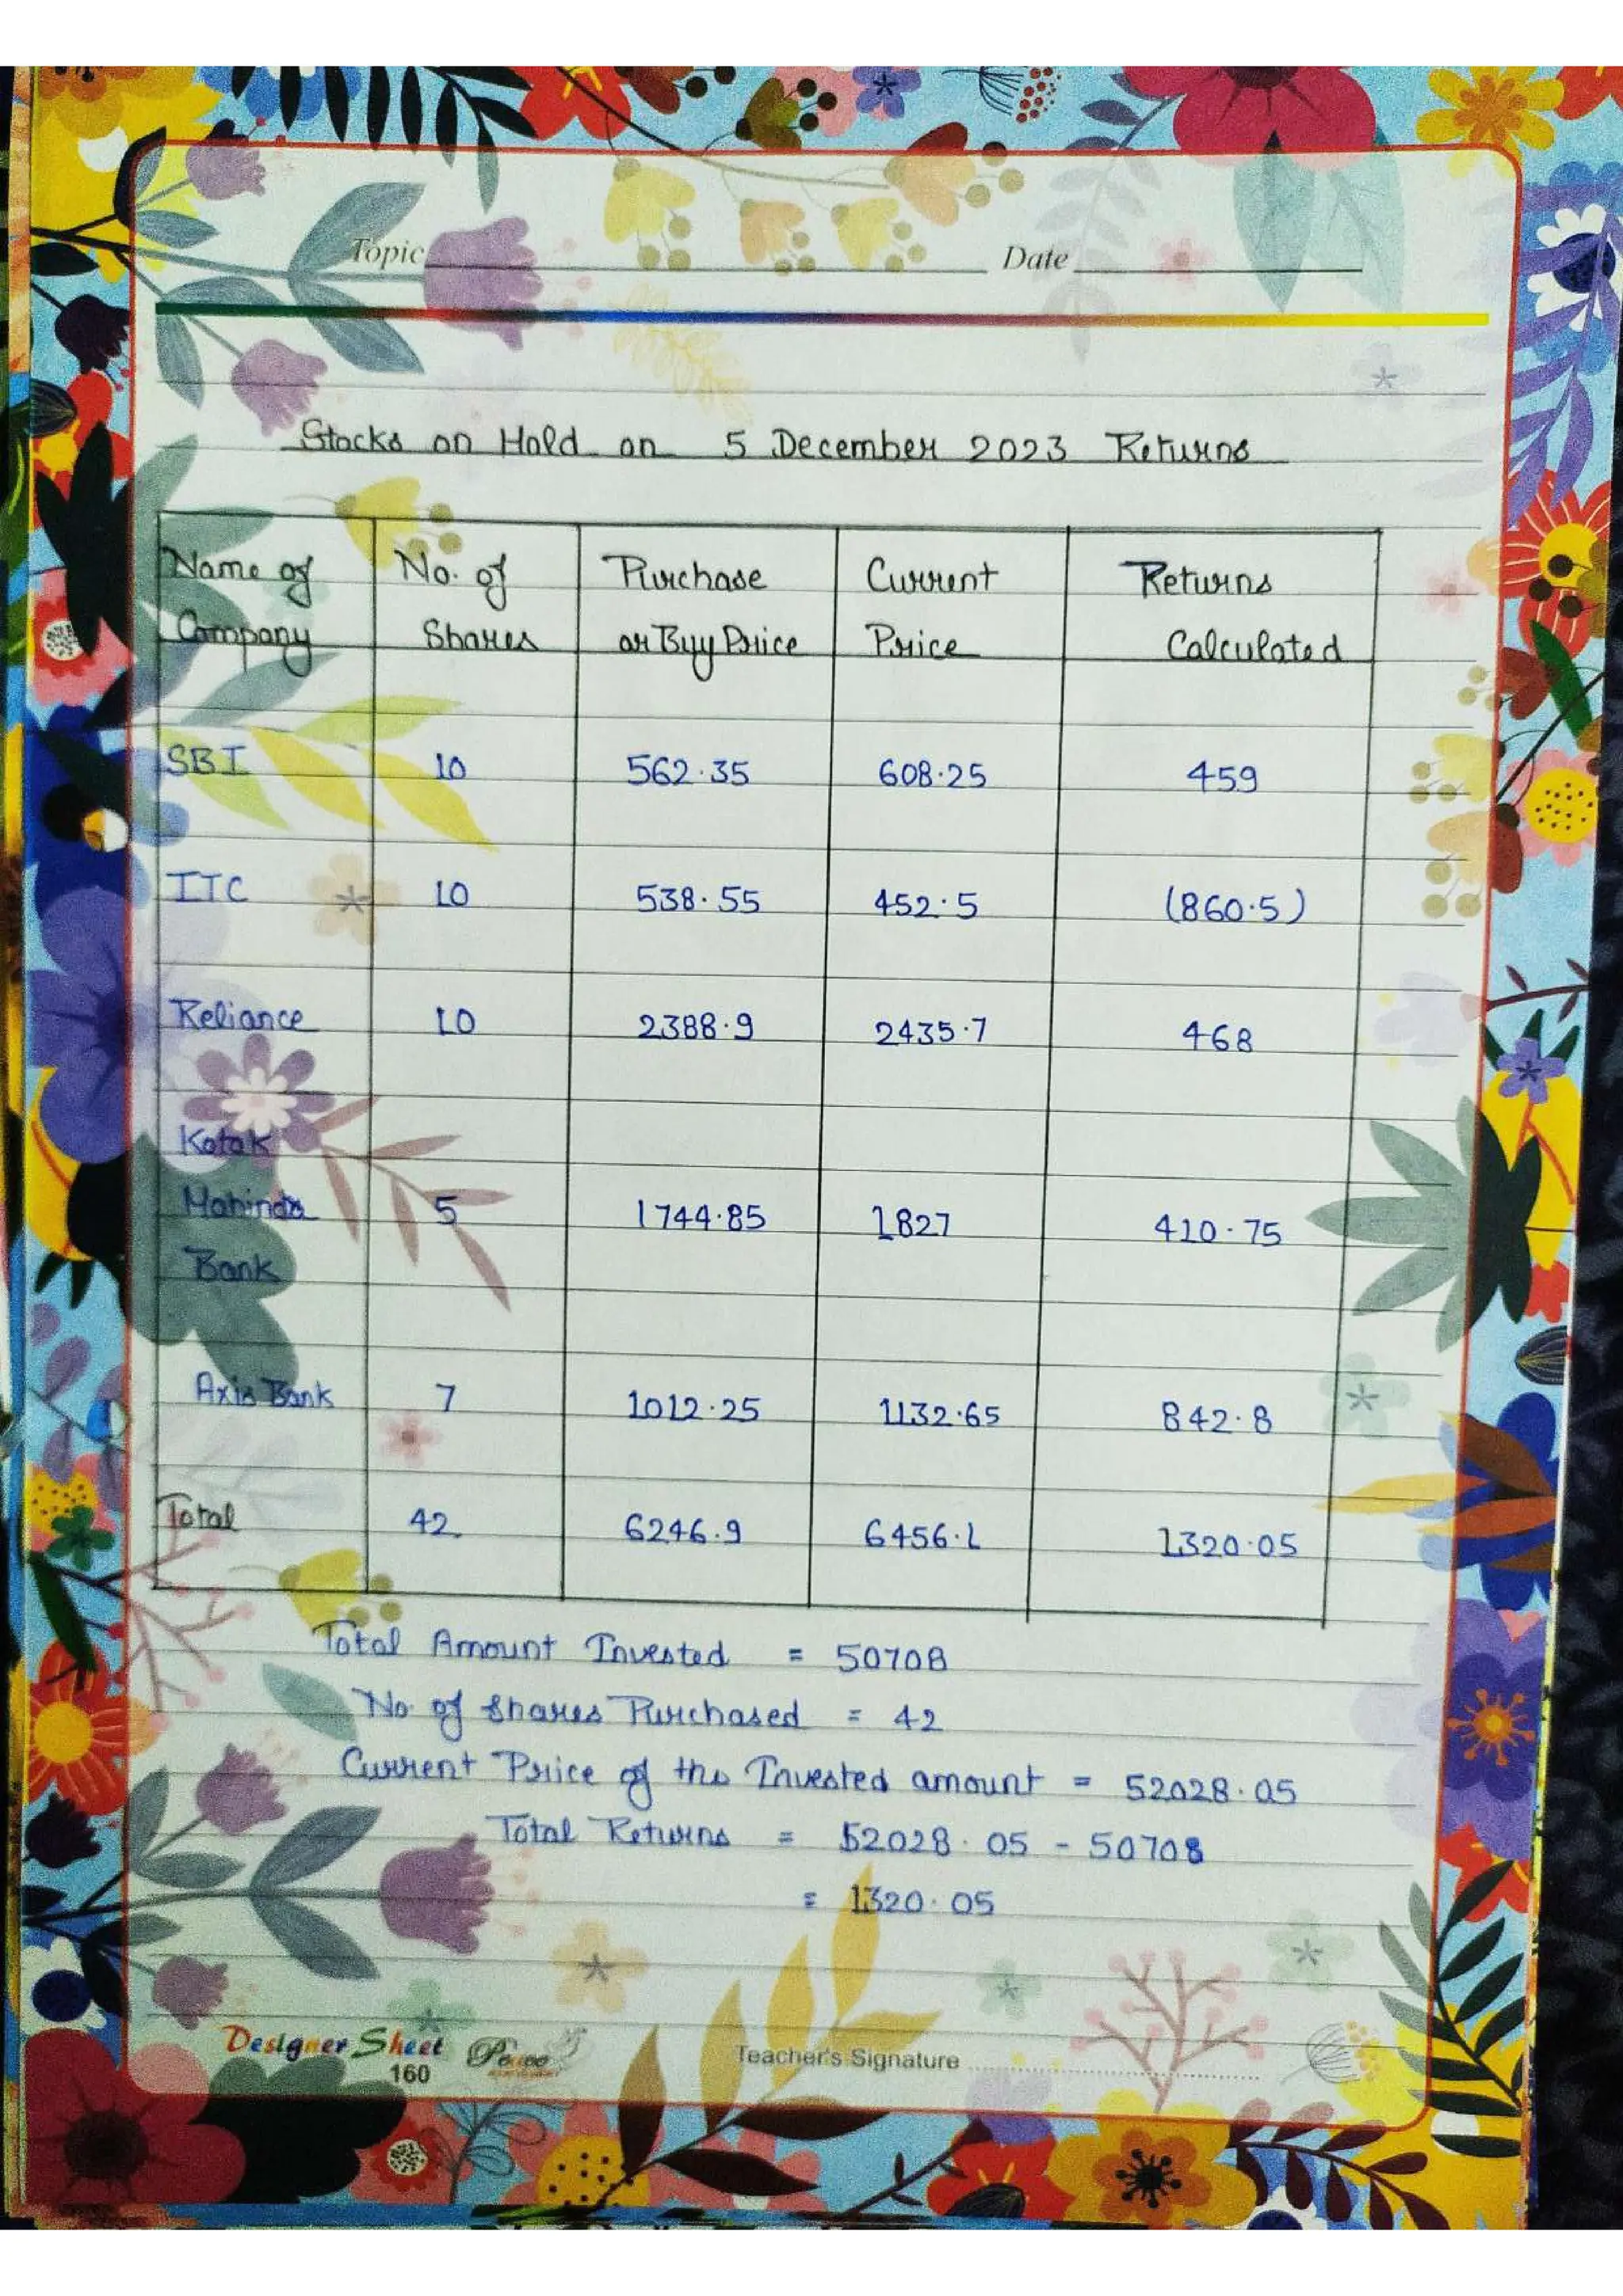 Topic Date
Stocks on Hold on 5 December 2023 Returns
Name of Company No. of Shares Purchase or Buy Price Current Price Returns Calculated
SBI 10 562.35 608.25 459
ITC 10 538.55 452.5 (860.5)
Reliance 10 2388.9 2435.7 468
Kotak
Mahinda 5 1744.85 1827 410.75
Bank
Axis Bank 7 1012.25 1132.65 842.8
Total 42 6246.9 6456.1 1320.05
Total Amount Invested = 50708
No. of Shares Purchased = 42
Current Price of the Invested amount = 52028.05
Total Returns = 52028.05 - 50708
= 1320.05
Designer Sheet
160 Teacher's Signature